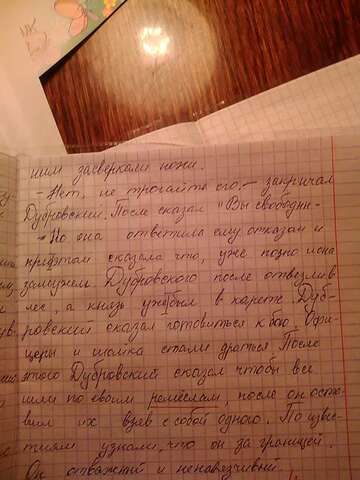 ним засверкали ножи.
- Нет, не трогайте его, - закричал
Дубровский. После сказал "Вы свободн-
- Но она ответила ему отказом и
при этом сказала что, уже позно и она
замужем. Дубровского после отвезли в
лес, а князь уже был в карете. Дуб-
ровский сказал готовиться к бою. Офи-
церы и шайка стали драться. После
этого Дубровский сказал чтобы все
шли по своим ремёслам, после он оста-
вил их взяв с собой одного. По изве-
стиям узнали, что он за границей.
Он отважный и ненавязчивый.